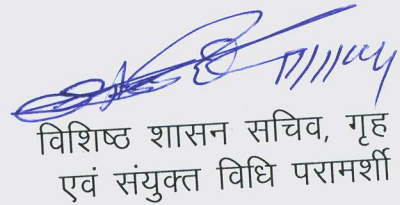 विशिष्ठ शासन सचिव, गृह
एवं संयुक्त विधि परामर्शी